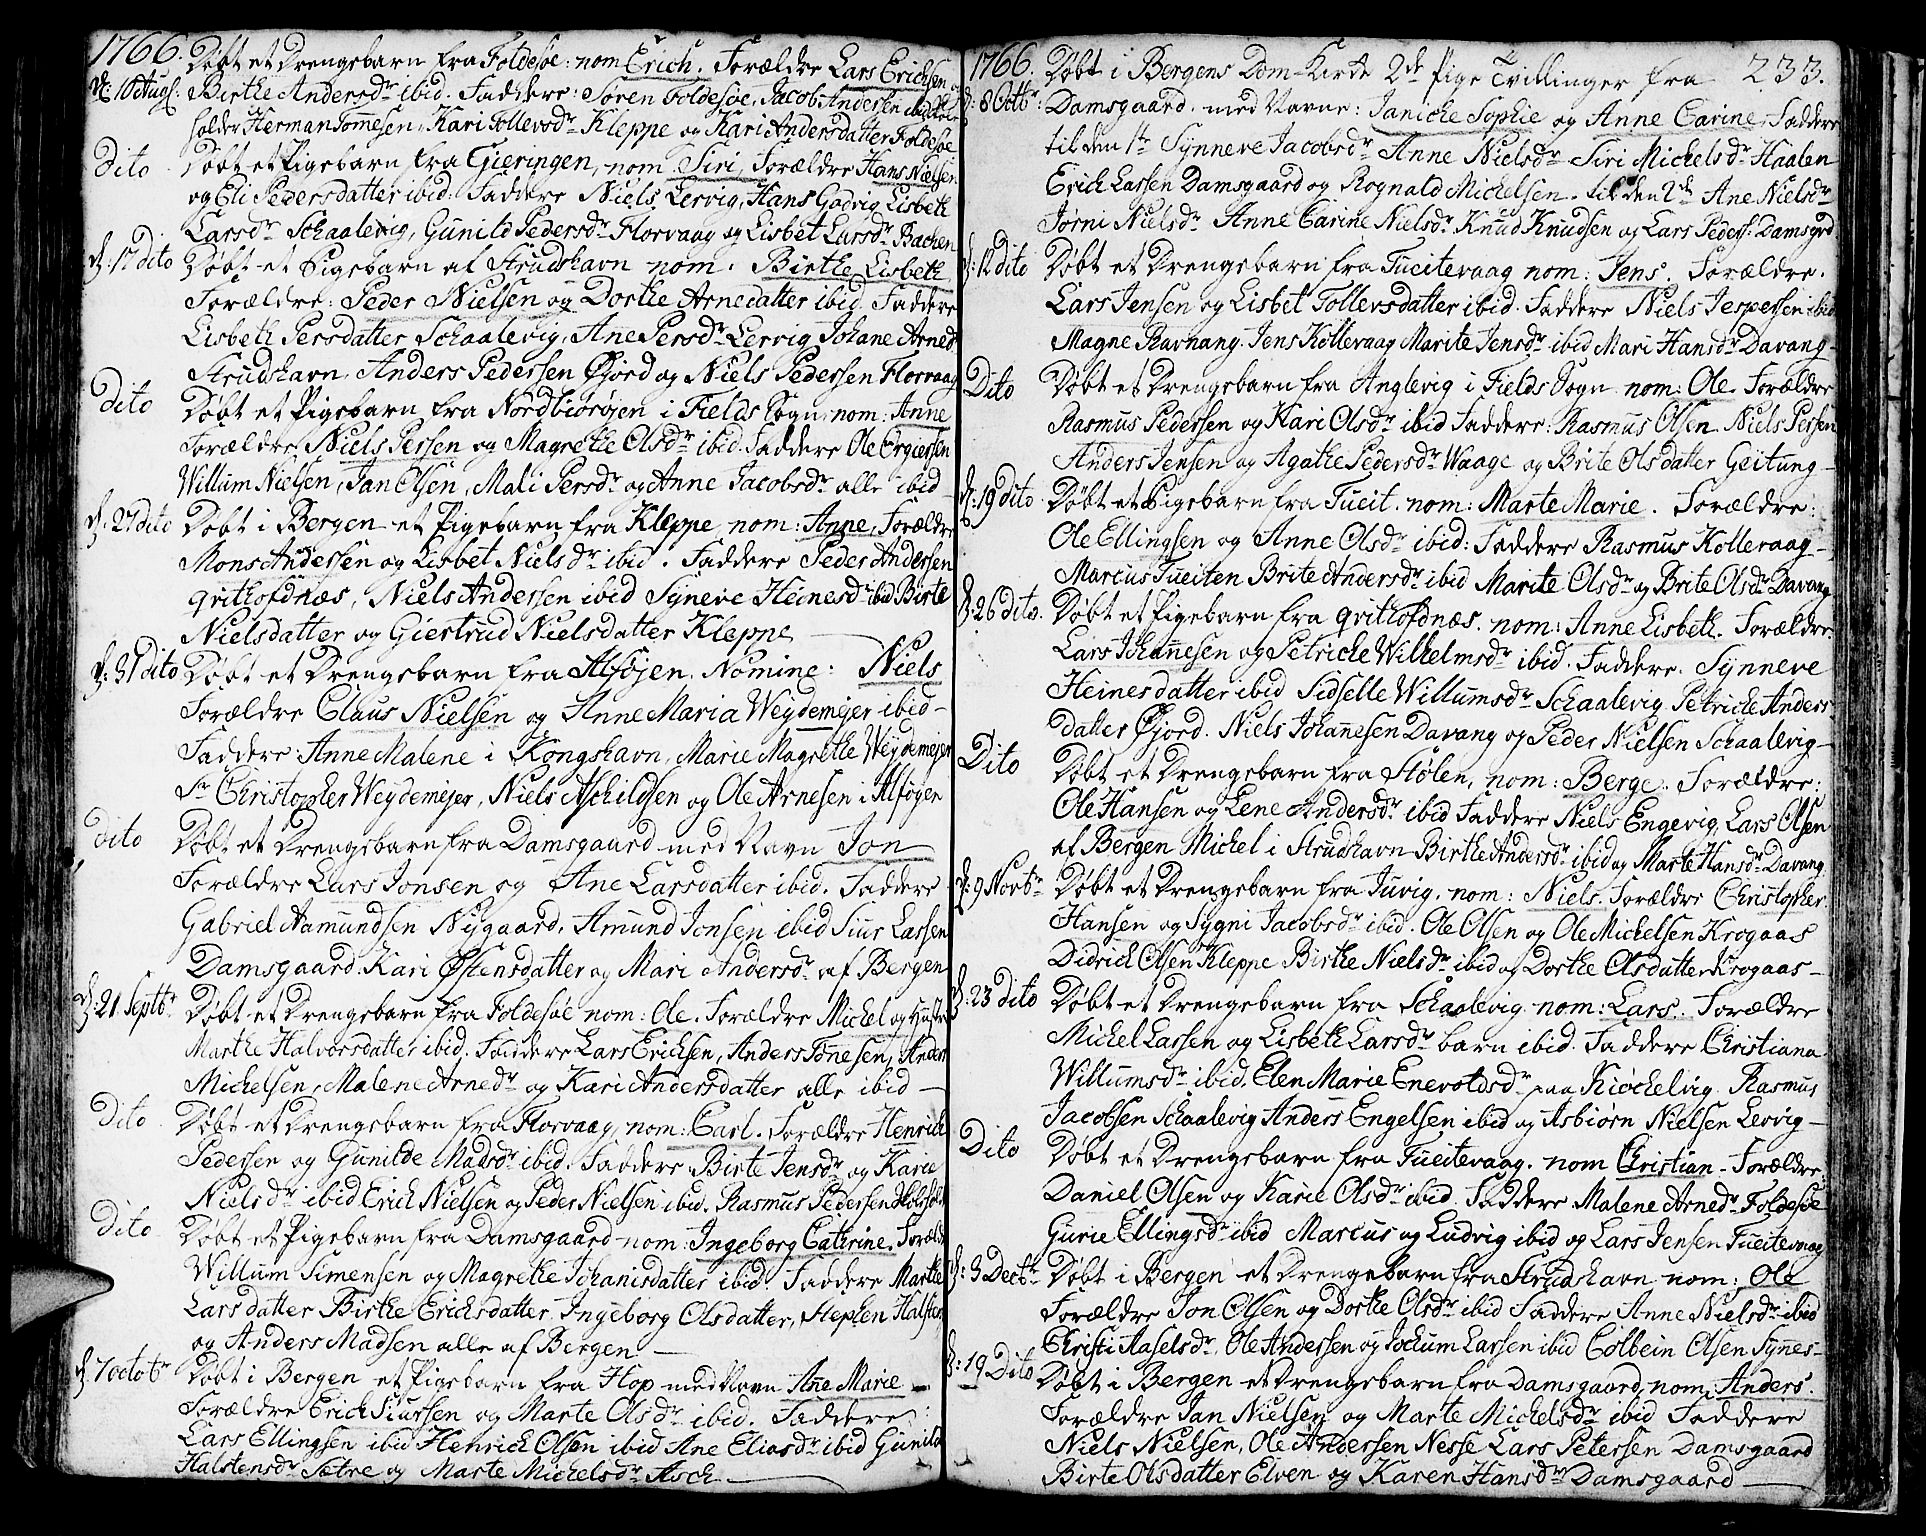 1766. Døbt et Drengebarn fra Foldesøe: nom Erich. Forældre Lars Erichsen
d: 10 Augs. Birthe Andersdr ibid. Faddere: Søren Foldesøe, Jacob Andersen ibid
holder Herman Tommesen, Kari Tollevsdr Kleppe og Kari Andersdatter Foldesøe
Dito Døbt et Pigebarn fra Gieringen, nom Siri, Forældre Hans Nielsen
og Eli Pedersdatter ibid. Faddere Niels Lervig, Hans Godvig Lisbeth
Larsdr Schaalevig, Gunild Pedersdr Florvaag og Lisbet Larsdr Bachen
d: 17 dito Døbt et Pigebarn af Strudshavn nom. Birthe Lisbeth
Forældre: Peder Nielsen og Dorthe Arnedatter ibid. Faddere
Lisbeth Persdatter Schaalevig, Ane Persdr Lervig Johane Arnedr
Strudshavn, Anders Pedersen Øjord og Niels Pedersen Florvaag
Dito Døbt et Pigebarn fra Nordbiorøjen i Fields Sogn, nom: Anne
Forældre, Niels Persen og Magrethe Olsdr ibid. Faddere Ole
Willum Nielsen, Jan Olsen, Mali Persdr og Anne Jacobsdr alle ibid
d: 27 dito Døbt i Bergen et Pigebarn fra Kleppe, nom: Anne, Forældre
Mons Andersen og Lisbet Nielsdr ibid. Faddere Peder Andersen
qvithofdnæs, Niels Andersen ibid Syneve Heinesdr ibid Birte
Nielsdatter og Giertrud Nielsdatter Kleppe
d: 31 dito Døbt et Drengebarn fra Alføjen. Nomine: Niels
Forældre Claus Nielsen og Anne Maria Weydemejer ibid
Faddere: Anne Malene i Kongshavn, Marie Magrethe Weydemejer
Sr Christopher Weydemejer, Niels Aschildsen og Ole Arnesen i Alføyen
dito Døbt et Drengebarn fra Damsgaard med Navn Jon
Forældre Lars Jonsen og Ane Larsdatter ibid. Faddere
Gabriel Aamundsen Nygaard, Amund Jonsen ibid Siur Larsen
Damsgaard. Kari Østensdatter og Mari Andersdr af Bergen
d: 21 Septbr Døbt et Drengebarn fra Foldesøe nom: Ole. Forældre Michel og Hustr
Marthe Halvorsdatter ibid. Faddere Lars Erichsen, Anders Tønesen, Anders
Michelsen, Malene Arnedr og Kari Andersdatter alle ibid
Dito Døbt et Drengebarn fra Florvaag, nom: Carl. Forældre Henrich
Pedersen og Gunilde Madsdr ibid. Faddere. Birte Jensdr og Karie
Nielsdr ibid Erich Nielsen og Peder Nielsen ibid. Rasmus Pedersen
Dito Døbt et Pigebarn fra Damsgaard nom: Ingeborg Cathrine. Forældr
Willum Simensen og Magrethe Johanisdatter ibid. Faddere Marthe
Larsdatter Birthe Erichsdatter, Ingeborg Olsdatter, Stephen Halsten
og Anders Madsen alle af Bergen
d: 7 octobr Døbt i Bergen et Pigebarn fra Hop med Navn Ane Marie
Forældre Erich Siursen og Marte Olsdr ibid. Faddere:
Lars Ellingsen ibid Henrich Olsen ibid Ane Eliasdr ibid Gunild
Halstensdr Sætre og Marte Michelsdr Asch
1766. Døbt i Bergens Dom-Kirke 2de Pige Tvillinger fra 233.
d: 8 Octbr: Damsgaard. med Navne: Janiche Sophie og Anne Carine, Faddere
til den 1te Synneve Jacobsdr Anne Nielsdr Siri Michelsdr Haalen
Erich Larsen Damsgaard og Rognald Michelsen. til den 2de Ane Nielsdr
Jørni Nielsdr Anne Carine Nielsdr Knud Knudsen og Lars Peders: Damsgrd
d: 12 dito Døbt et Drengebarn fra Tueitevaag nom: Jens. Forældre.
Lars Jensen og Lisbet Tollevsdatter ibid. Faddere Niels Jespersen ibid
Magne Ravnang. Jens Kolleraag Marite Jensdr ibid Mari Hansdr Davang
Dito Døbt et Drengebarn fra Anglevig i Fields Sogn nom: Ole. Forældre
Rasmus Pedersen og Kari Olsdr ibid Faddere: Rasmus Olsen. Niels Persen
Anders Jensen og Agathe Pedersdr Waage og Brite Olsdatter Geitung
d: 19 dito. Døbt et Pigebarn fra Tueit. nom: Marte Marie. Forældre:
Ole Ellingsen og Anne Olsdr ibid: Faddere Rasmus Kolleraag
Marcus Tueiten Brite Andersdr ibid Marite Olsdr og Brite Olsdr Davang
d: 26 dito. Døbt et Pigebarn fra qvitofdnæs. nom: Anne Lisbeth. Forældre
Lars Johannesen og Petriche Wilhelmsdr ibid. Faddere. Synneve
Heinesdatter ibid Sidselle Willumsdr Schaalevig Petriche Anders
datter Øjord. Niels Johanesen Davang og Peder Nielsen Schaalevig
Dito Døbt et Drengebarn fra Stølen, nom: Berge. Forældre:
Ole Hansen og Lene Andersdr ibid Faddere Niels Engevig, Lars Olsen
af Bergen Michel i Strudshavn Birthe Andersdr ibid og Marte Hansdr Davang
d: 9 Novbr Døbt et Drengebarn fra Juvig. nom: Niels. Forældre Christopher
Hansen og Sygni Jacobsdr ibid. Ole Olsen og Ole Michelsen Krogaas
Didrich Olsen Kleppe Birthe Nielsdr ibid og Dorthe Olsdatter Krogaas
d: 23 dito Døbt et Drengebarn fra Schaalevig nom: Lars. Forældre
Michel Larsen og Lisbeth Larsdr barn ibid. Faddere Christiana
Willumsdr ibid. Elen Marie Enevoldsdr paa Kiøchelvig. Rasmus
Jacobsen Schaalevig Anders Engelsen ibid og Asbiørn Nielsen Lervig
Dito Døbt et Drengebarn fra Tueitevaag. nom Christian. Forældre
Daniel Olsen og Karie Olsdr ibid. Faddere Malene Arnedr Foldesøe
Gurie Ellingsdr ibid Marcus og Ludvig ibid og Lars Jensen Tueitevaag
d: 3 Decbr Døbt i Bergen et Drengebarn fra Strudshavn nom: Ole
Forældre Jon Olsen og Dorthe Olsdr ibid Faddere Anne Nielsdr ibid
Christi Aaselsdr, Ole Andersen og Jochum Larsen ibid Colbein Olsen Synes
d: 19 Dito Døbt i Bergen et Drengebarn fra Damsgaard, nom: Anders.
Forældre Jan Nielsen og Marte Michelsdr ibid Faddere
Niels Nielsen, Ole Andersen Nesse Lars Petersen Damsgaard
Birte Olsdatter Elven og Karen Hansdr Damsgaard